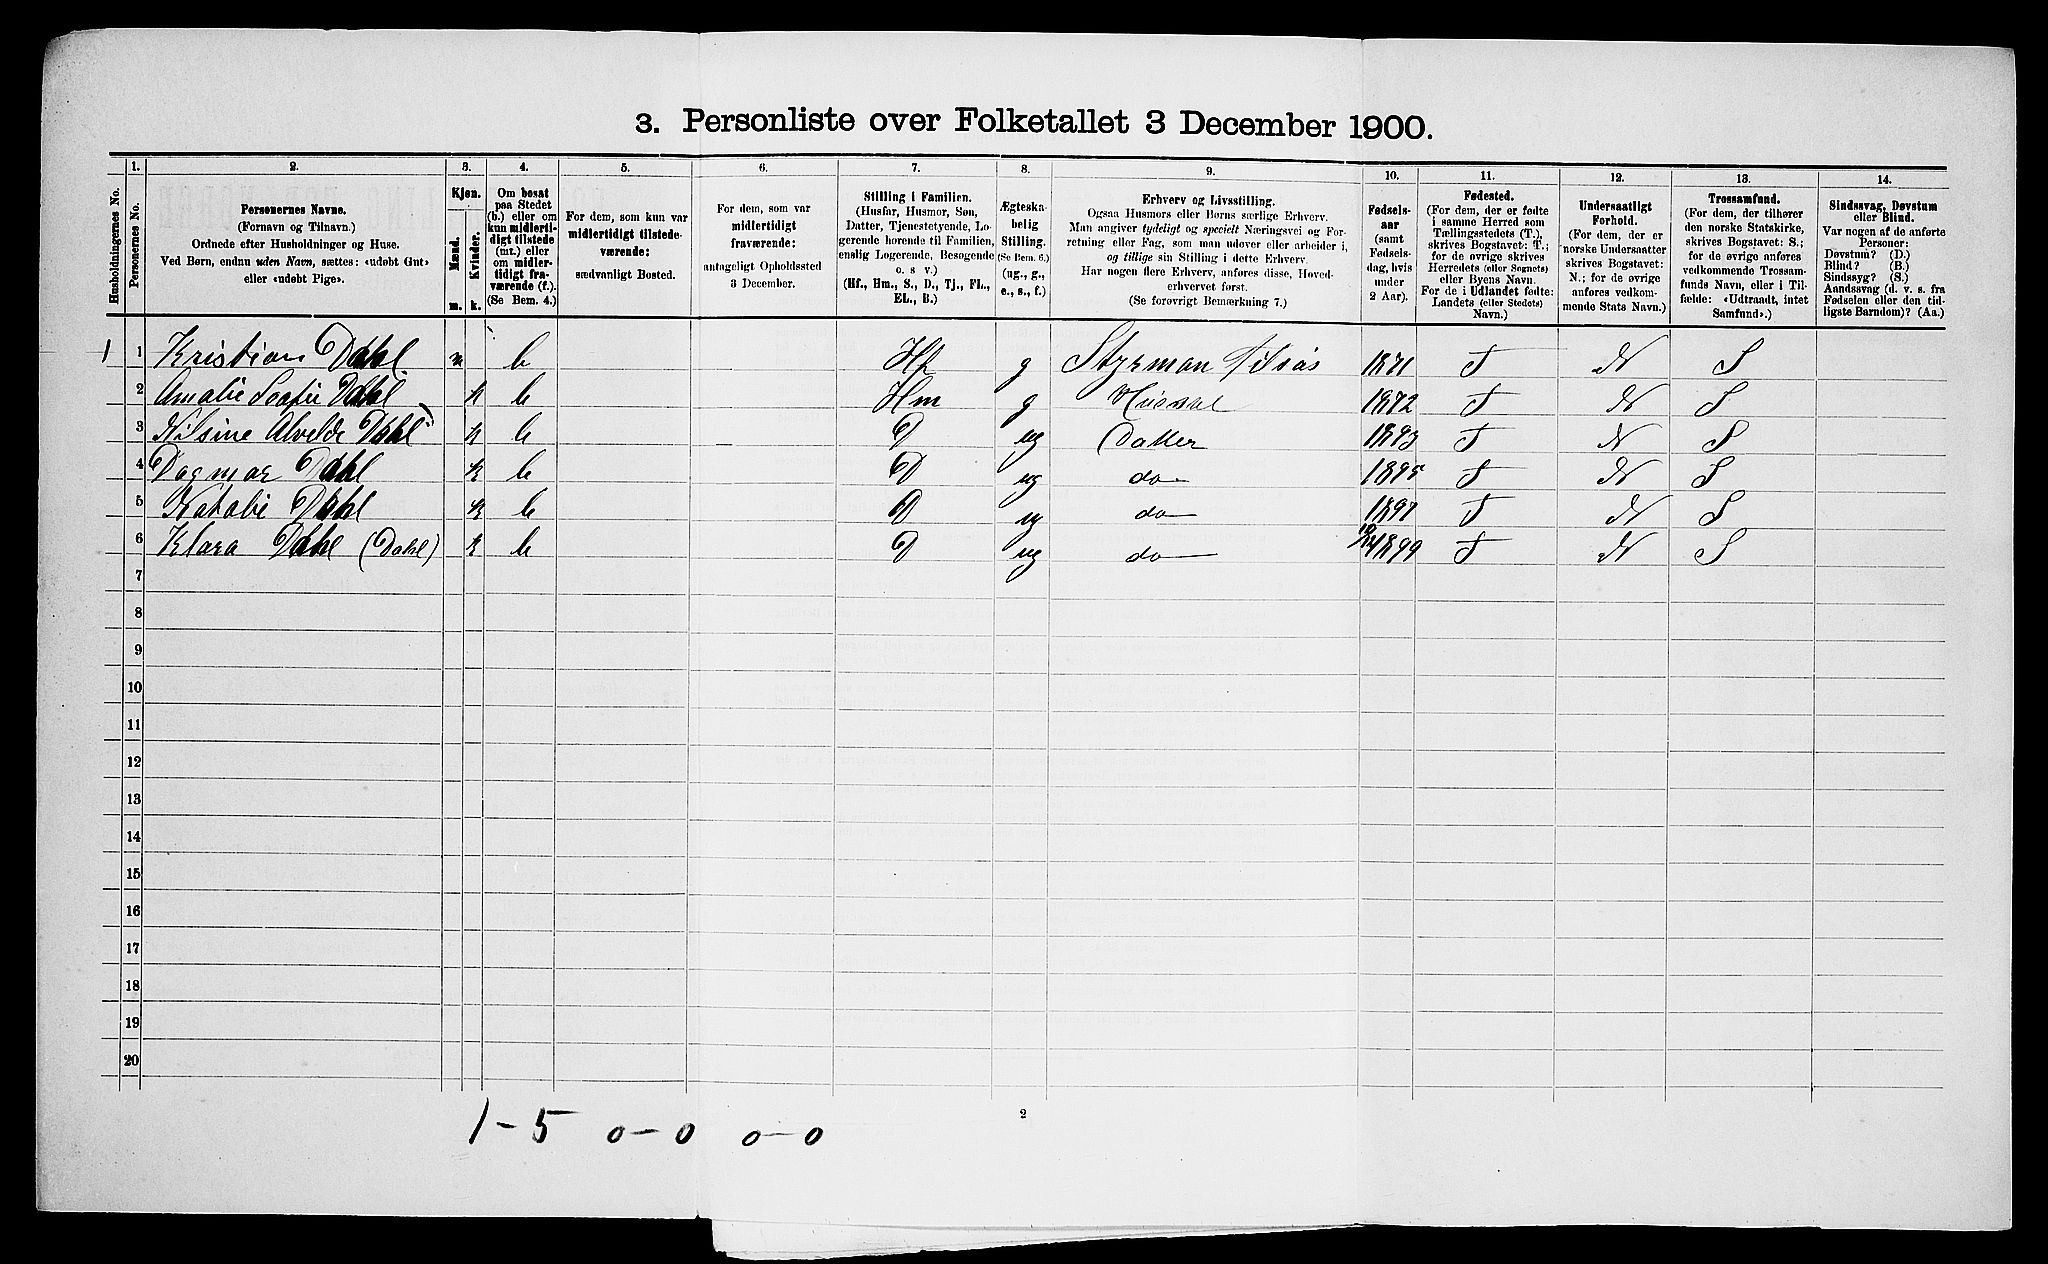 3. Personliste over Folketallet 3 December 1900.
Husholdningernes No.
1.
Personernes No.
2.
Personernes Navne.
(Fornavn og Tilnavn.)
Ordnede efter Husholdninger og Huse.
Ved Børn, endnu uden Navn, sættes: «udøbt Gut»
eller «udøbt Pige».
3.
Kjøn.
Mænd.
m.
Kvinder.
k.
4.
Om bosat
paa Stedet
(b.) eller om
kun midler-
tidigt tilstede
(mt.) eller
om midler-
tidigt fra-
værende (f.).
(Se Bem. 4.)
5.
For dem, som kun var
midlertidigt tilstede-
værende:
sædvanligt Bosted.
6.
For dem, som var
midlertidigt
fraværende:
antageligt Opholdssted
3 December.
7.
Stilling i Familien.
(Husfar, Husmor, Søn,
Datter, Tjenestetyende, Lo-
gerende hørende til Familien,
enslig Logerende, Besøgende
o. s v.)
(Hf., Hm., S., D., Tj., FL.,
EL., B.)
8.
Ægteska-
belig
Stilling.
(Se Bem. 6.)
(ug., g.,
e., s., f.)
9.
Erhverv og Livsstilling.
Ogsaa Husmors eller Børns særlige Erhverv.
Man angiver tydeligt og specielt Næringsvei og For-
retning eller Fag, som man udøver eller arbeider i,
og tillige sin Stilling i dette Erhverv.
Har nogen flere Erhverv, anføres disse, Hoved-
erhvervet først.
(Se forøvrigt Bemærkning 7.)
10.
Fødsels-
aar
(samt
Fødsels-
dag, hvis
under
2 Aar).
11.
Fødested.
(For dem, der er fødte
i samme Herred som
Tællingsstedets (T.),
skrives Bogstavet: T.;
for de øvrige skrives
Herredets (eller Sognets)
eller Byens Navn.
For de i Udlandet fødte:
Landets (eller Stedets)
Navn.)
12.
Undersaatligt
Forhold.
(For dem, der er
norske Undersaatter
skrives Bogstavet:
N.; for de øvrige
anføres vedkom-
mende Stats Navn.)
13.
Trossamfund.
(For dem, der tilhører
den norske Statskirke,
skrives Bogstavet: S.;
for de øvrige anføres
vedkommende Trossam-
funds Navn, eller i Til-
fælde: «Udtraadt, intet
Samfund».)
14.
Sindssvag, Døvstum
eller Blind.
Var nogen af de anførte
Personer:
Døvstum? (D.)
Blind? (B.)
Sindssyg? (S.)
Aandssvag (d. v. s. fra
Fødselen eller den tid-
ligste Barndom)? (Aa.)
1 1 Kristian Dahl m b Hf g Styrman Tilsøs 1871 T N S
2 Amalie Sofie Dahl k b Hm g 1872 T N S
3 Nilsine Alvelde Dahl k b D ug Datter 1893 T N S
4 Dagmar Dahl k b D ug do 1895 T N S
5 Natalie Dahl k b D ug do 1897 T N S
6 Klara Dahl (Dahl) k b D ug do 1899 T N S
7
8
9
10
11
12
13
14
15
16
17
18
19
20
2
1-5 0-0 0-0